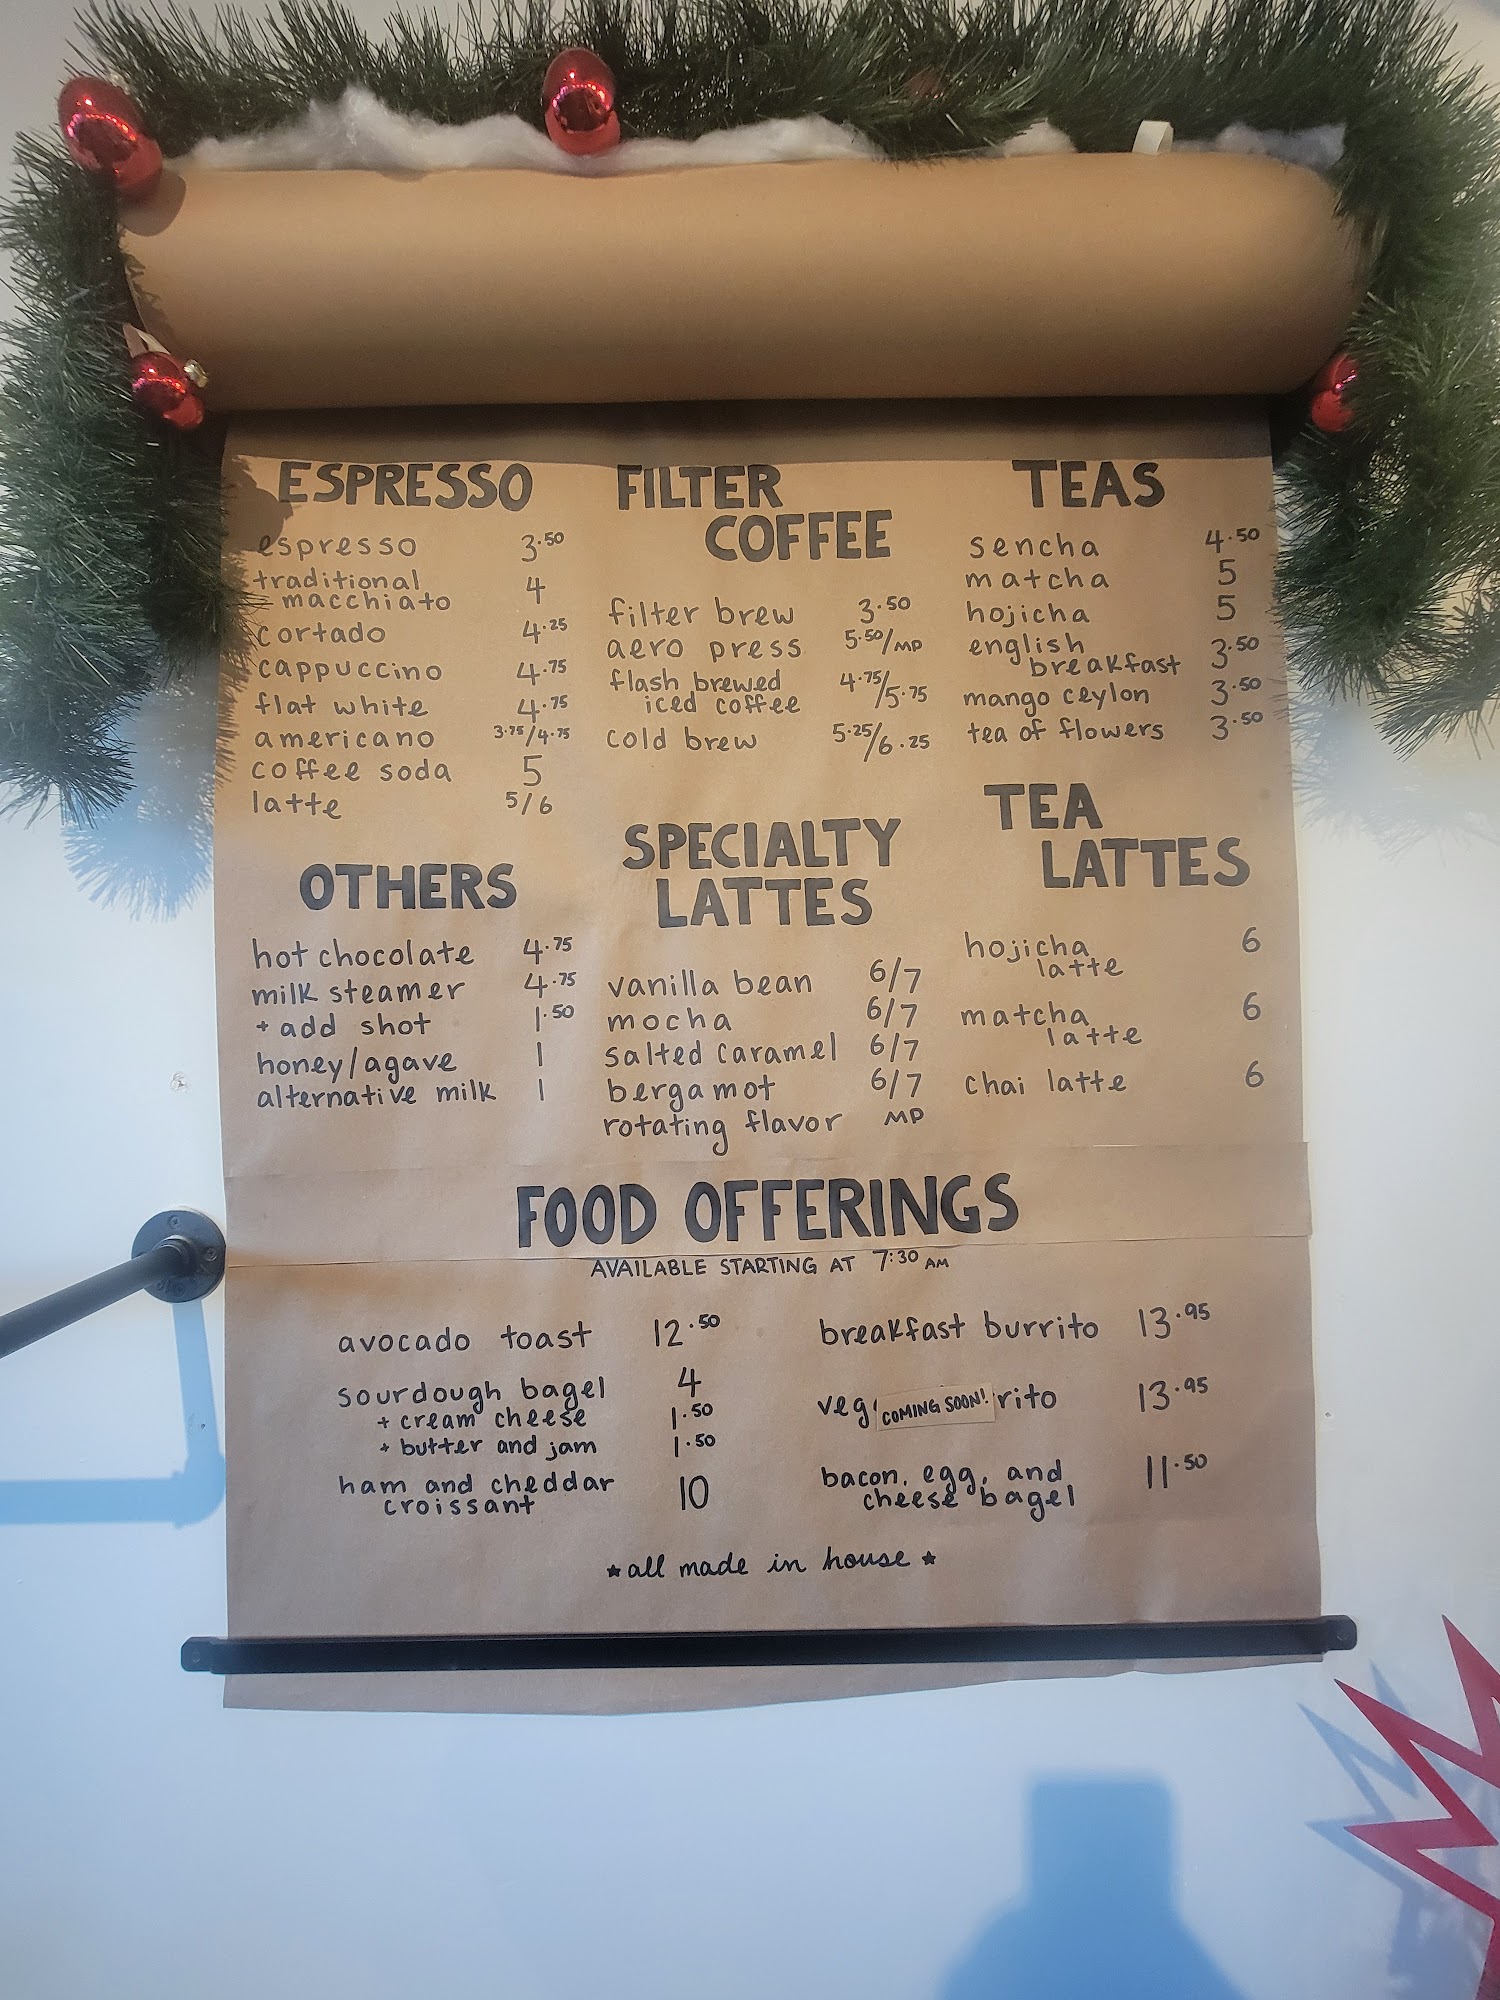 ESPRESSO
espresso 3.50
traditional
macchiato 4
cortado 4.25
cappuccino 4.75
flat white 4.75
americano 3.75/4.75
coffee soda 5
latte 5/6
OTHERS
hot chocolate 4.75
milk steamer 4.75
+ add shot 1.50
honey/agave 1
alternative milk 1
FILTER
COFFEE
filter brew 3.50
aero press 5.50/MP
flash brewed
iced coffee 4.75/5.75
cold brew 5.25/6.25
SPECIALTY
LATTES
vanilla bean 6/7
mocha 6/7
salted caramel 6/7
bergamot 6/7
rotating flavor MP
TEAS
sencha 4.50
matcha 5
hojicha 5
english
breakfast 3.50
mango ceylon 3.50
tea of flowers 3.50
TEA
LATTES
hojicha 6
latte
matcha 6
latte
chai latte 6
FOOD OFFERINGS
AVAILABLE STARTING AT 7:30 AM
avocado toast 12.50
sourdough bagel 4
+ cream cheese 1.50
+ butter and jam 1.50
ham and cheddar
croissant 10
breakfast burrito 13.95
COMING SOON! 13.95
bacon, egg, and 11.50
cheese bagel
*all made in house*